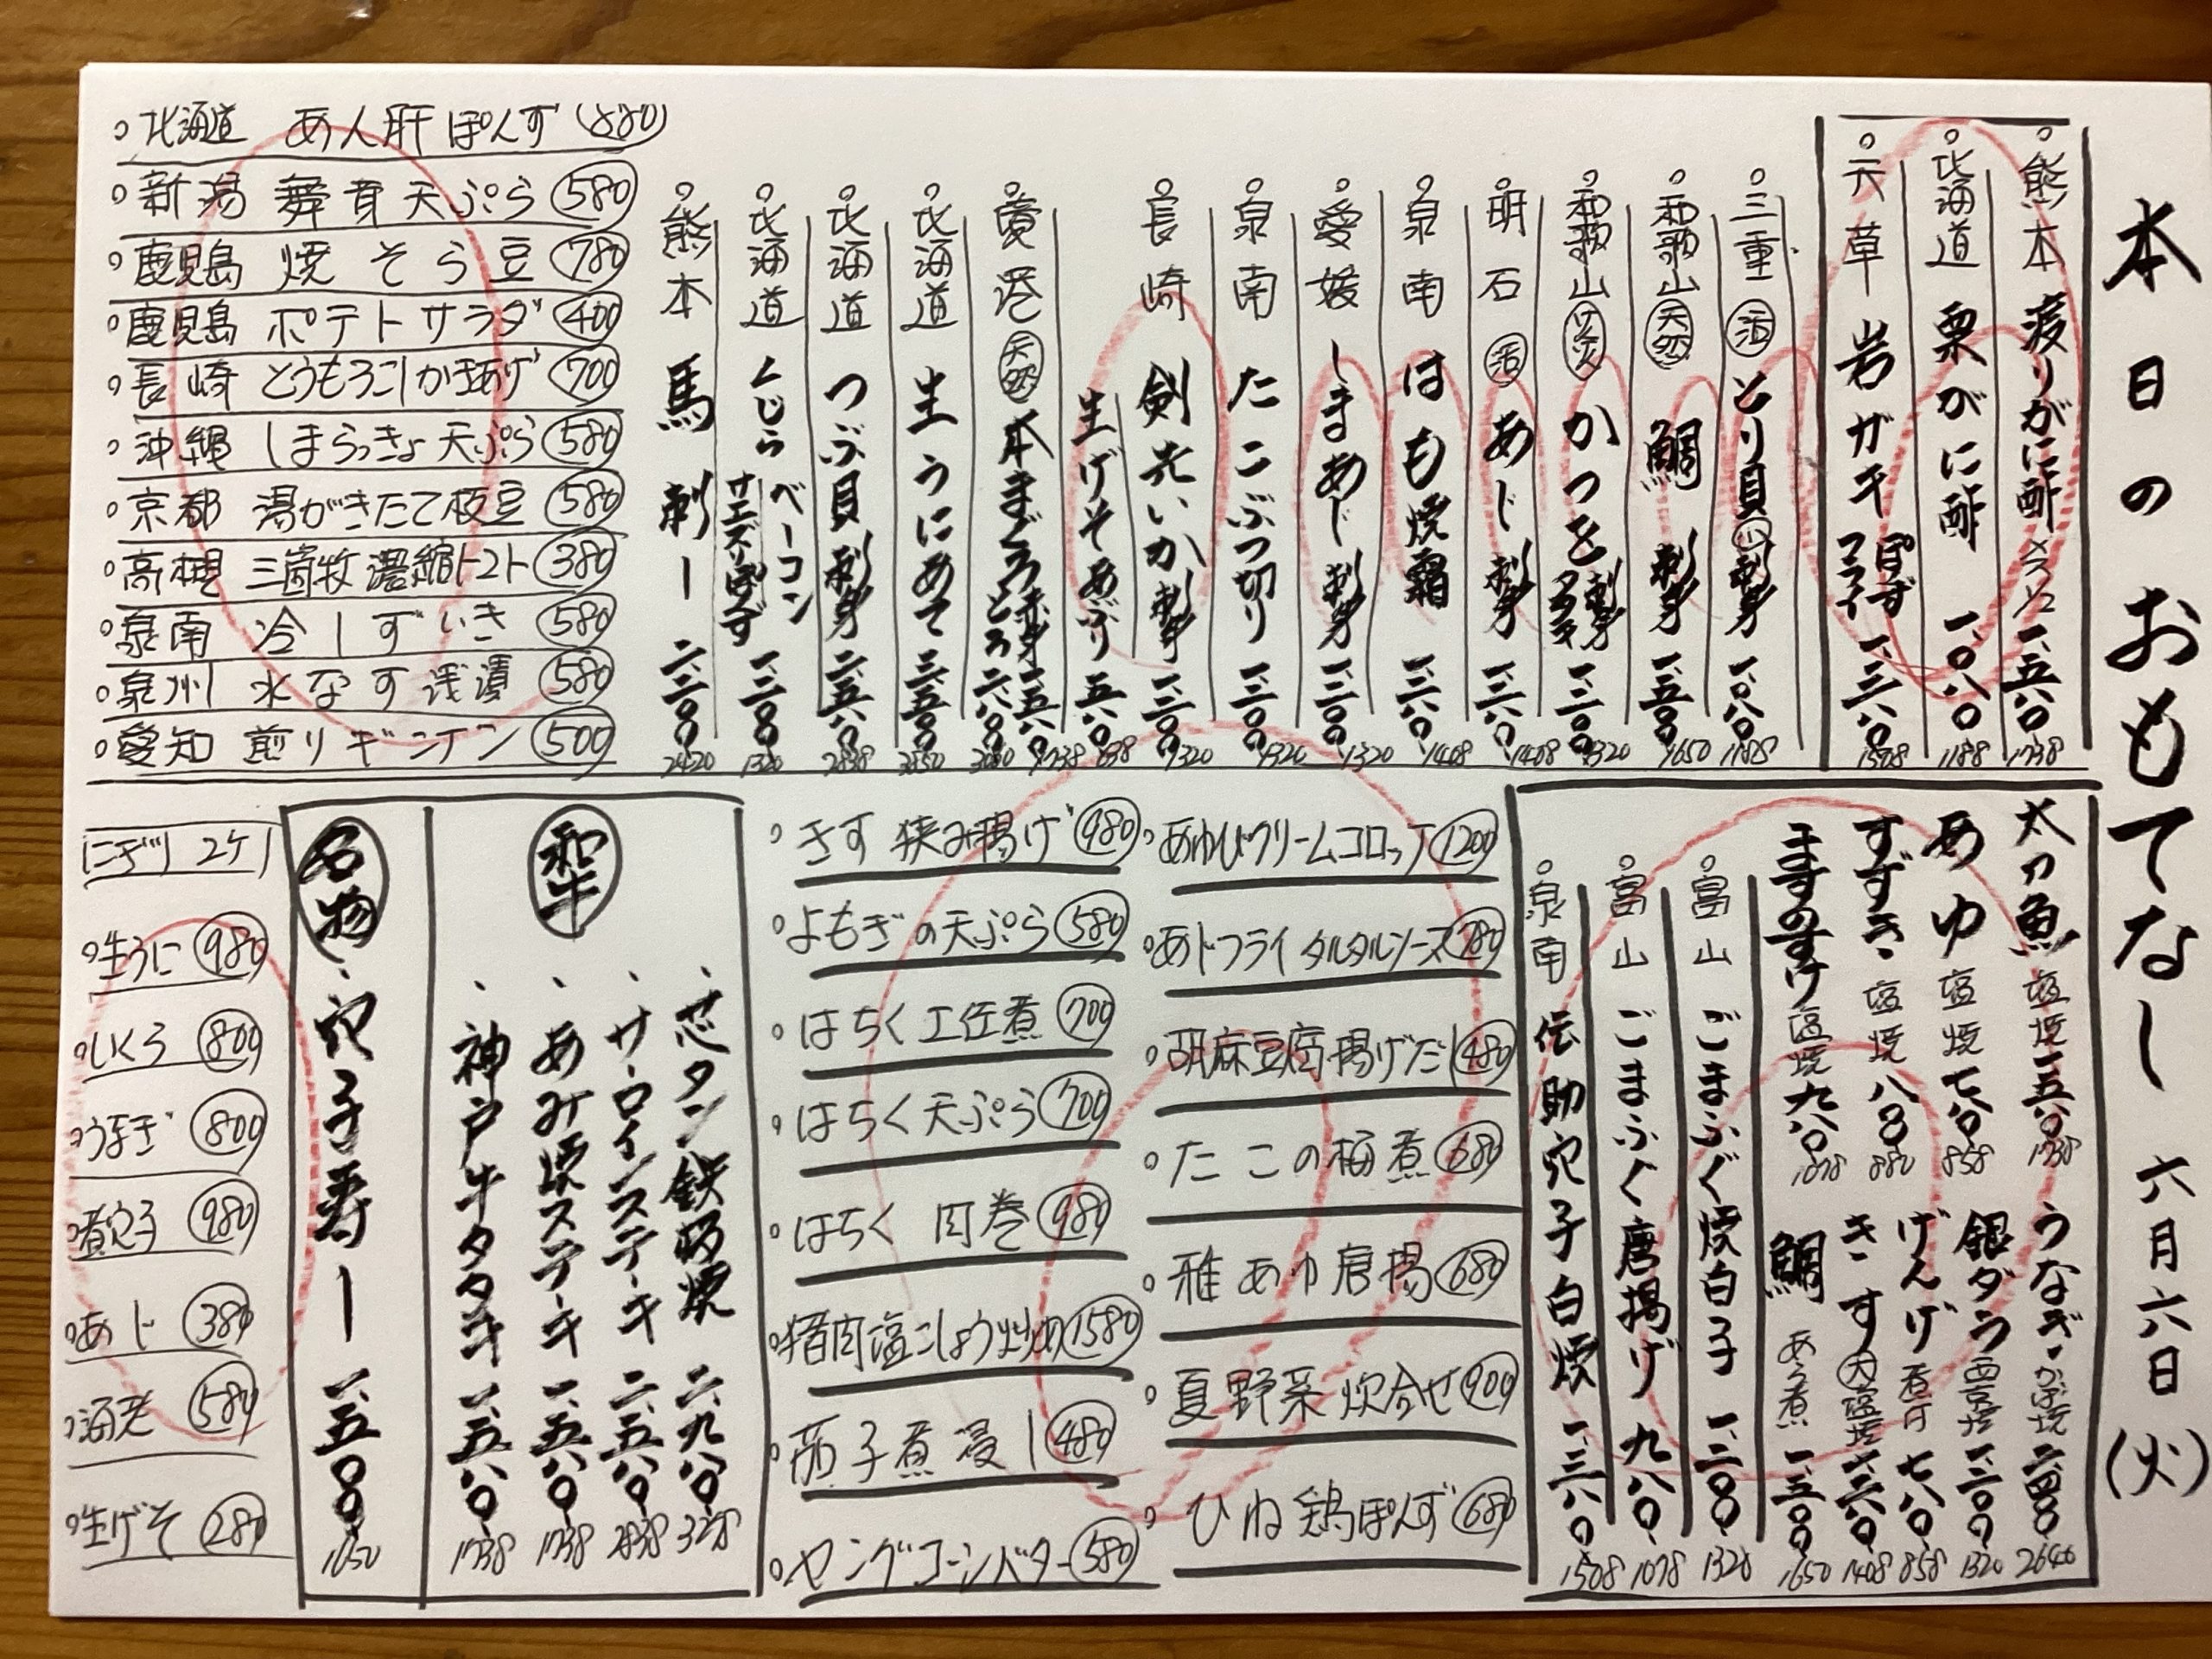 本日のおもてなし 六月六日(火)
熊本 渡りがに酢 メス 一、五八〇 1738
北海道 栗がに酢 一、〇八〇 1188
天草 岩ガキ ぽんず フライ 一、三八〇 1508
三重 活 とり貝 刺身 一、〇八〇 1188
和歌山 天然 鯛 刺身 一、五〇〇 1650
和歌山 かつを 刺身 一、二〇〇 1320
明石 活 あじ 刺身 一、二八〇 1408
泉南 はも焼霜 一、二八〇 1408
愛媛 しまあじ 刺身 一、二〇〇 1320
泉南 たこぶつ切り 一、二〇〇 1320
長崎 剣先いか 刺身 一、二〇〇 1320
生げそあぶり 五八〇 638
天然 本まぐろ 赤身 一、五八〇 1738 とろ 二、八〇〇 3080
北海道 生うにあて 三、五〇〇
北海道 つぶ貝 刺身 二、五八〇 2838
北海道 くじら ベーコン サエズリぽんず 一、二〇〇 1320
熊本 馬刺し 二、二〇〇 2420
北海道 あん肝ぽんず 880
新潟 舞茸天ぷら 580
鹿児島 焼そら豆 780
鹿児島 ポテトサラダ 400
長崎 とうもろこしかきあげ 700
沖縄 しまらっきょ天ぷら 580
京都 湯がきたて枝豆 580
高槻 三箇牧濃縮トマト 380
泉南 冷しずいき 580
泉州 水なす浅漬 580
愛知 煎りギンナン 500
太刀魚 塩焼 一、五八〇 1738
あゆ 塩焼 七八〇 858
すずき 塩焼 八〇〇 880
ますのすけ 塩焼 九八〇 1078
うなぎ かば焼 二、四〇〇 2640
銀ダラ 西京焼 一、二〇〇 1320
げんげ 七八〇 858
きす 大 塩焼 一、二八〇 1408
鯛 あら煮 一、五〇〇 1650
富山 ごまふぐ焼白子 一、二〇〇 1320
富山 ごまふぐ唐揚げ 九八〇 1078
泉南 伝助穴子白焼 一、三八〇 1508
あゆクリームコロッケ 1200
あじフライ タルタルソース 780
胡麻豆腐揚げだし 480
たこの梅煮 680
稚あゆ唐揚 680
夏野菜炊合せ 900
ひね鶏ぽんず 680
きす挟み揚げ 980
よもぎの天ぷら 580
はちく土佐煮 700
はちく天ぷら 700
はちく肉巻 980
猪肉塩こしょう炒め 1580
茄子煮浸し 480
ヤングコーンバター 580
和牛
芯タン鉄板焼 二、九八〇 3278
サーロインステーキ 二、五八〇 2838
あみ焼ステーキ 一、五八〇 1738
神戸牛タタキ 一、五八〇 1738
名物
穴子寿し 一、五〇〇 1650
にぎり 2ケ
生うに 980
いくら 800
うなぎ 800
煮穴子 980
あじ 380
海老 580
生げそ 280